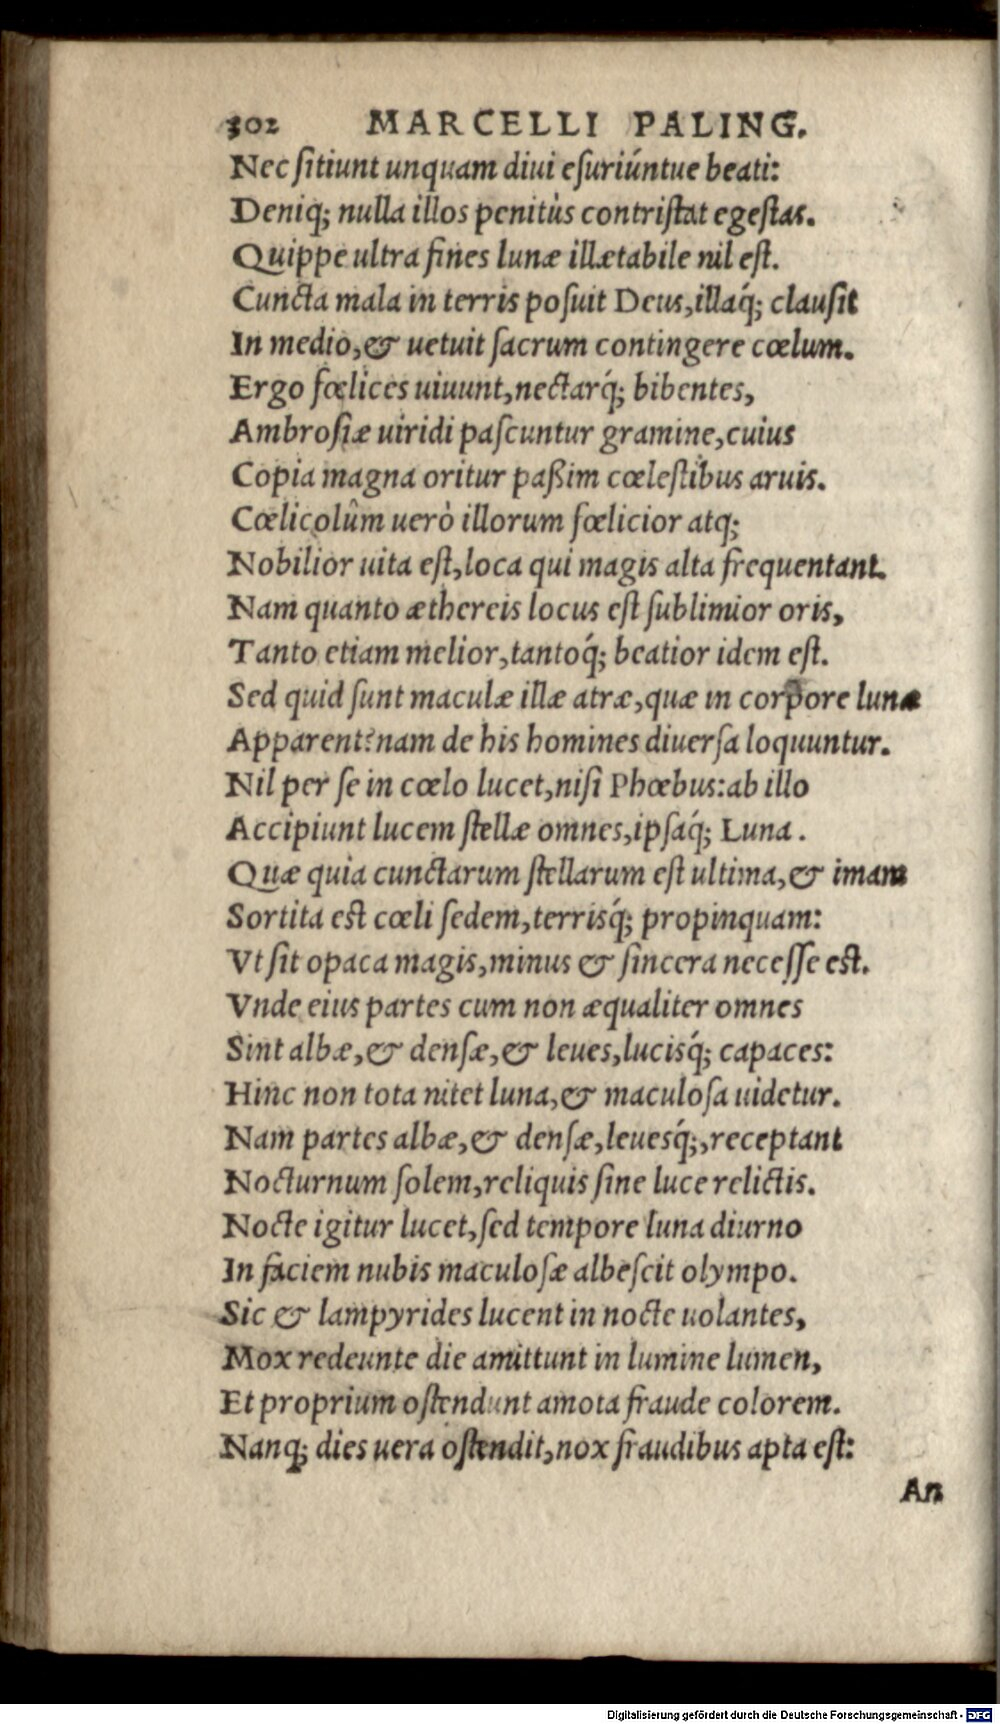 302 MARCELLI PALING.
Nec ſitiunt unquam diui eſuriúntue beati:
Deniq; nulla illos penitùs contriſtat egeſtas.
Quippe ultra fines lunæ illætabile nil eſt.
Cuncta mala in terris poſuit Deus, illaq́; clauſit
In medio, & uetuit ſacrum contingere cœlum.
Ergo fœlices uiuunt, nectarq́; bibentes,
Ambroſiæ uiridi paſcuntur gramine, cuius
Copia magna oritur paßim cœleſtibus aruis.
Cœlicolûm uerò illorum fœlicior atq;
Nobilior uita eſt, loca qui magis alta frequentant.
Nam quanto æthereis locus eſt ſublimior oris,
Tanto etiam melior, tantoq́; beatior idem eſt.
Sed quid ſunt maculæ illæ atræ, quæ in corpore lunæ
Apparent? nam de his homines diuerſa loquuntur.
Nil per ſe in cœlo lucet, niſi Phœbus: ab illo
Accipiunt lucem ſtellæ omnes, ipſaq́; Luna.
Quæ quia cunctarum ſtellarum eſt ultima, & imam
Sortita eſt cœli ſedem, terrisq́; propinquam:
Vt ſit opaca magis, minus & ſincera neceſſe eſt.
Vnde eius partes cum non æqualiter omnes
Sint albæ, & denſæ, & leues, lucisq́; capaces:
Hinc non tota nitet luna, & maculoſa uidetur.
Nam partes albæ, & denſæ, leuesq́;, receptant
Nocturnum ſolem, reliquis ſine luce relictis.
Nocte igitur lucet, ſed tempore luna diurno
In faciem nubis maculoſæ albeſcit olympo.
Sic & lampyrides lucent in nocte uolantes,
Mox redeunte die amittunt in lumine lumen,
Et proprium oſtendunt amota fraude colorem.
Nanq; dies uera oſtendit, nox fraudibus apta eſt:
An
Digitalisierung gefördert durch die Deutsche Forschungsgemeinschaft - DFG